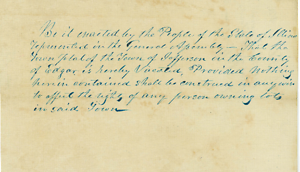 Be it enacted by the People of the State of Illinois
represented in the General Assembly — That the
Town plat of the Town of Jefferson in the County
of Edgar is hereby Vacated, Provided Nothing
herein contained shall be construed in any way
to affect the right of any person owning lots
in said Town —